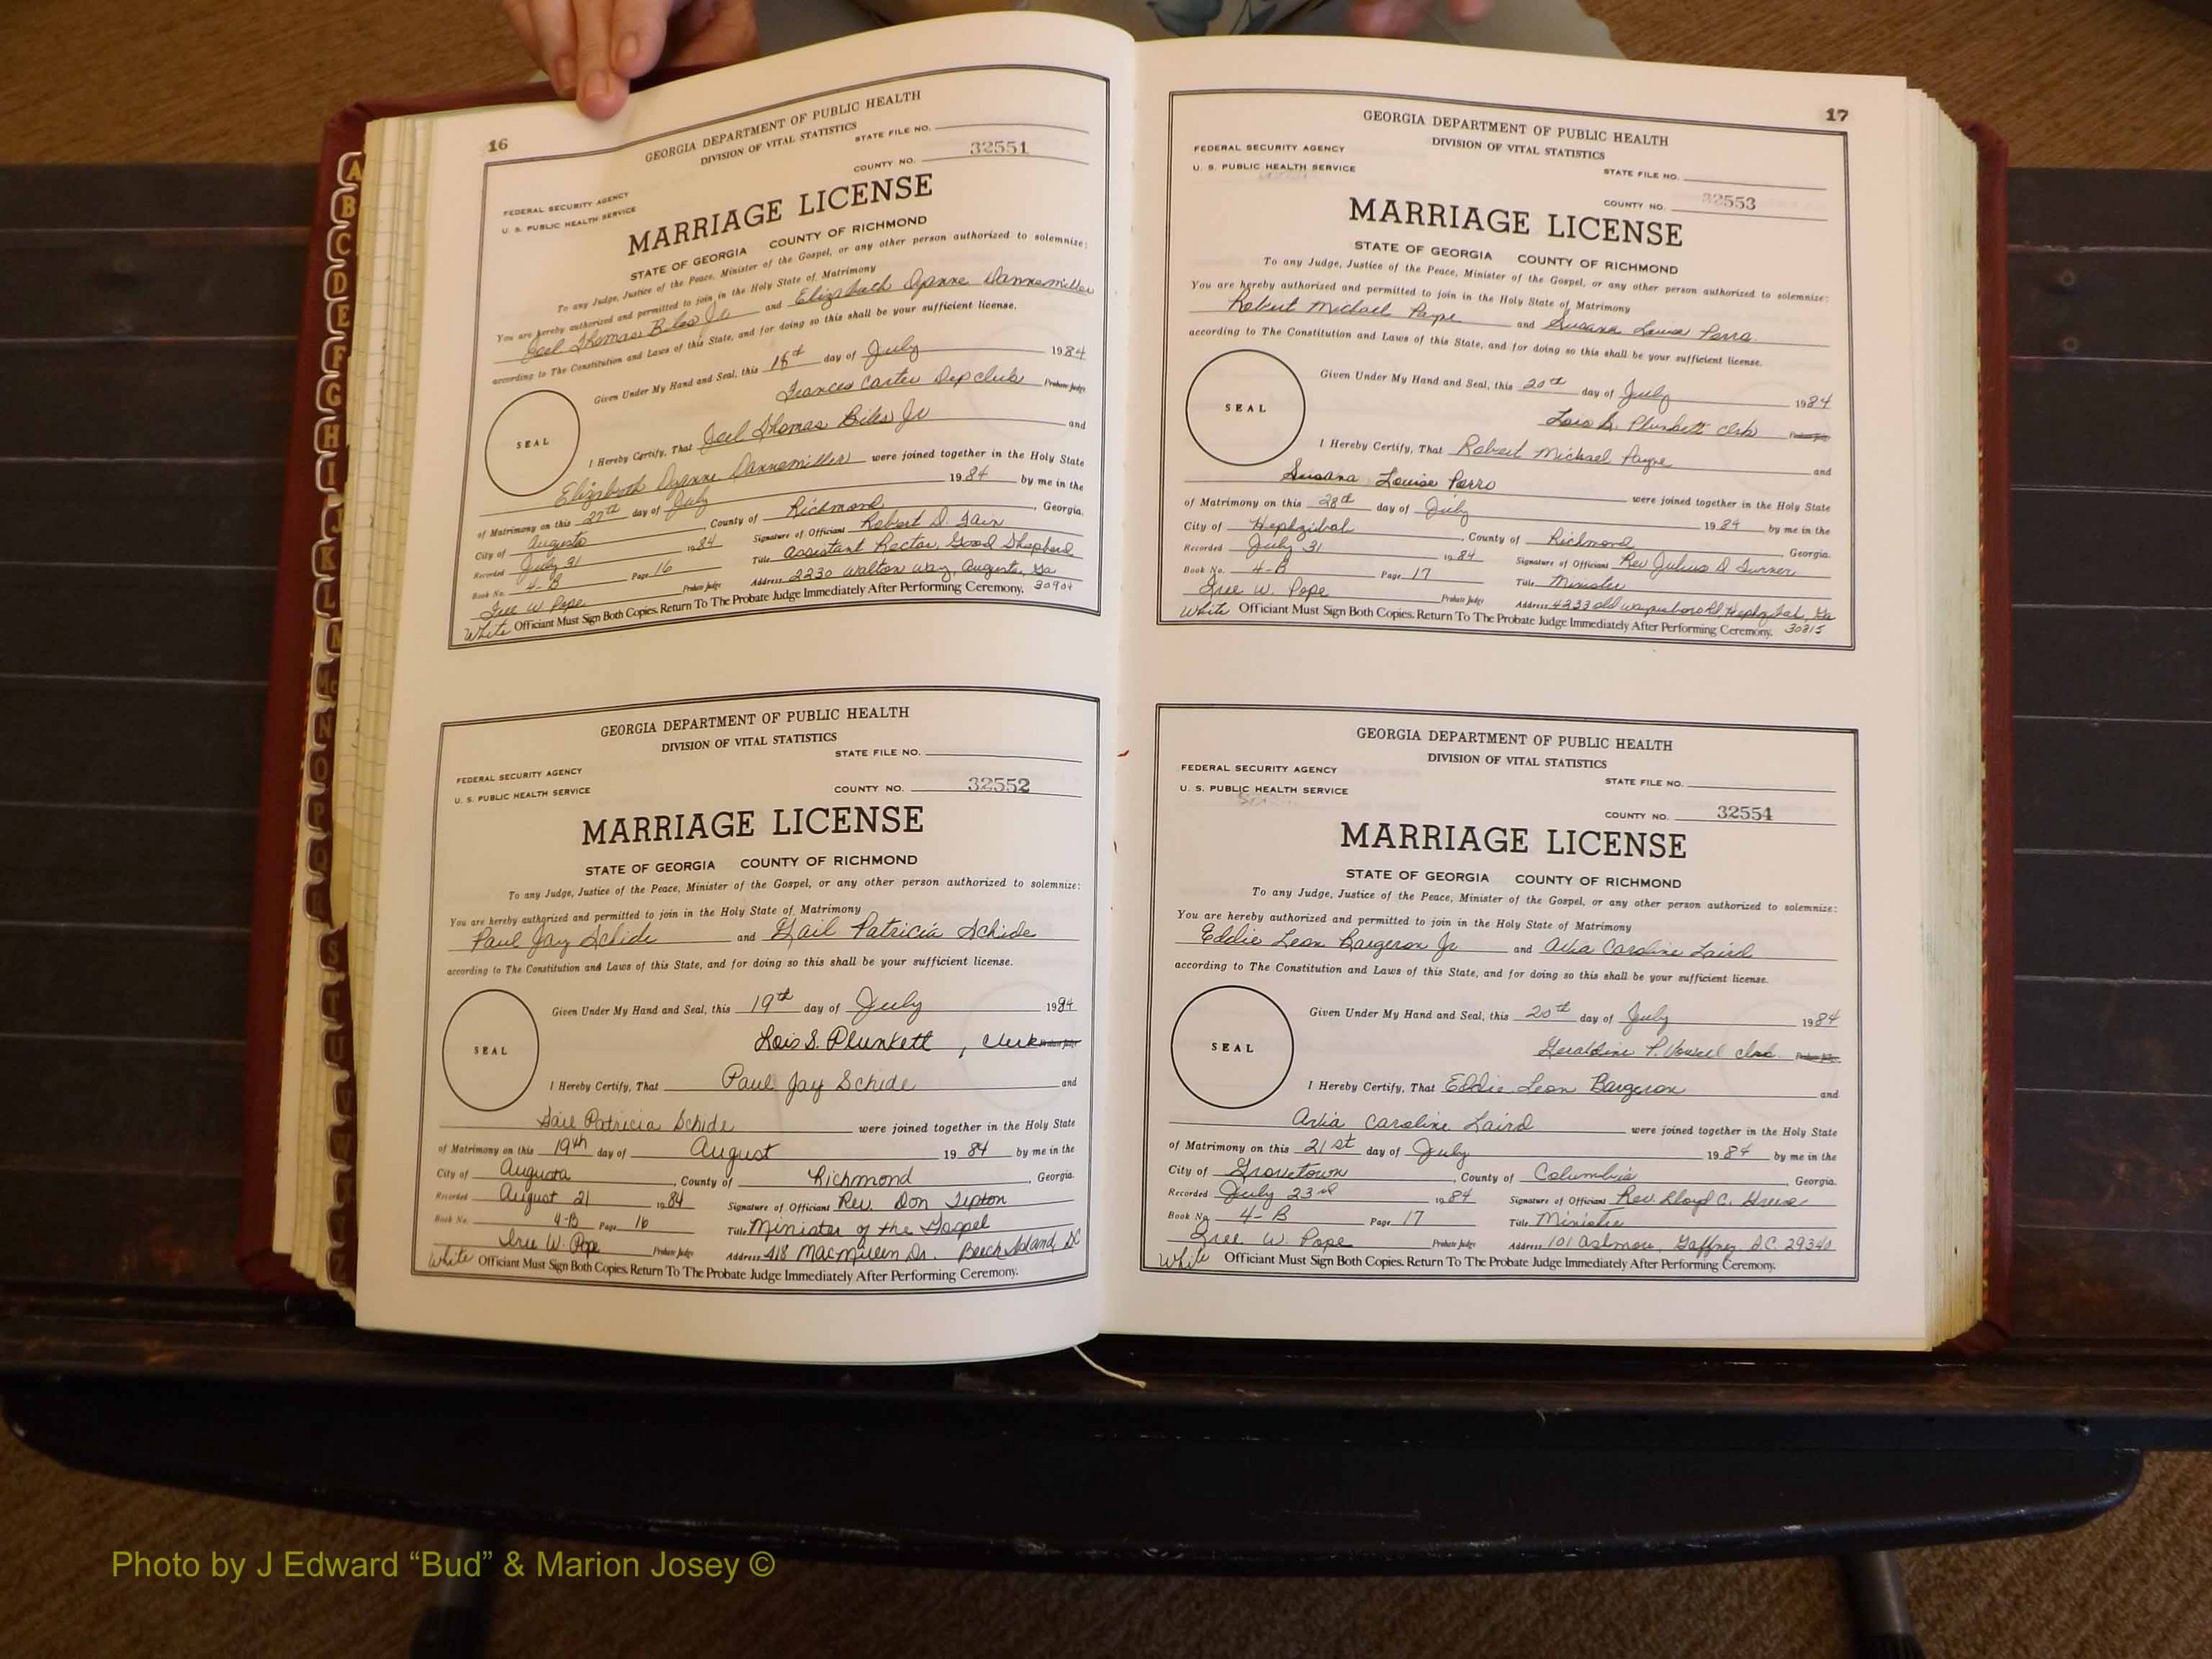 16
GEORGIA DEPARTMENT OF PUBLIC HEALTH
DIVISION OF VITAL STATISTICS
STATE FILE NO.
COUNTY NO. 32551
FEDERAL SECURITY AGENCY
U. S. PUBLIC HEALTH SERVICE
MARRIAGE LICENSE
STATE OF GEORGIA COUNTY OF RICHMOND
To any Judge, Justice of the Peace, Minister of the Gospel, or any other person authorized to solemnize:
You are hereby authorized and permitted to join in the Holy State of Matrimony
Joel Thomas Biles Jr and Elizabeth Dyanne Dannemiller
according to The Constitution and Laws of this State, and for doing so this shall be your sufficient license.
Given Under My Hand and Seal, this day of July 1984
Frances Carter Dep clerk Probate Judge
SEAL
I Hereby Certify, That Joel Thomas Biles Jr and
Elizabeth Dyanne Dannemiller were joined together in the Holy State
of Matrimony on this 27th day of July 1984 by me in the
City of Augusta County of Richmond, Georgia.
Recorded July 31 1984 Signature of Officiant Robert D. Fain
Book No. 4-B Page 16 Title Assistant Rector, Good Shepherd
Probate Judge Address 2230 Walton Way, Augusta, Ga
W. Pope 30904
White Officiant Must Sign Both Copies. Return To The Probate Judge Immediately After Performing Ceremony.
GEORGIA DEPARTMENT OF PUBLIC HEALTH
DIVISION OF VITAL STATISTICS
STATE FILE NO.
FEDERAL SECURITY AGENCY
U. S. PUBLIC HEALTH SERVICE
COUNTY NO. 32552
MARRIAGE LICENSE
STATE OF GEORGIA COUNTY OF RICHMOND
To any Judge, Justice of the Peace, Minister of the Gospel, or any other person authorized to solemnize:
You are hereby authorized and permitted to join in the Holy State of Matrimony
Paul Jay Schide and Gail Patricia Schide
according to The Constitution and Laws of this State, and for doing so this shall be your sufficient license.
Given Under My Hand and Seal, this 19th day of July 1984
Lois S. Plunkett, Clerk Probate Judge
SEAL
I Hereby Certify, That Paul Jay Schide and
Gail Patricia Schide were joined together in the Holy State
of Matrimony on this 19th day of August 19 84 by me in the
City of Augusta, County of Richmond, Georgia.
Recorded August 21 1984 Signature of Officiant Rev. Don Tipton
Book No. 4-B Page 16 Title Minister of the Gospel
W. Pope Probate Judge Address 418 MacMillen Dr. Beech Island, SC
White Officiant Must Sign Both Copies. Return To The Probate Judge Immediately After Performing Ceremony.
17
GEORGIA DEPARTMENT OF PUBLIC HEALTH
DIVISION OF VITAL STATISTICS
FEDERAL SECURITY AGENCY
U. S. PUBLIC HEALTH SERVICE
STATE FILE NO.
COUNTY NO. 32553
MARRIAGE LICENSE
STATE OF GEORGIA COUNTY OF RICHMOND
To any Judge, Justice of the Peace, Minister of the Gospel, or any other person authorized to solemnize:
You are hereby authorized and permitted to join in the Holy State of Matrimony
Robert Michael Payne and Susana Louise Perro
according to The Constitution and Laws of this State, and for doing so this shall be your sufficient license.
Given Under My Hand and Seal, this 20th day of July 1984
Lois S. Plunkett Clrk Probate Judge
SEAL
I Hereby Certify, That Robert Michael Payne and
Susana Louise Perro were joined together in the Holy State
of Matrimony on this 28th day of July 1984 by me in the
City of Hephzibah, County of Richmond, Georgia.
Recorded July 31 1984 Signature of Officiant Rev Julius D Turner
Book No. 4-B Page 17 Title Minister
W. Pope Probate Judge Address 4233 Old Waynesboro Rd, Hephzibah, Ga
White Officiant Must Sign Both Copies. Return To The Probate Judge Immediately After Performing Ceremony. 30815
GEORGIA DEPARTMENT OF PUBLIC HEALTH
DIVISION OF VITAL STATISTICS
FEDERAL SECURITY AGENCY
U. S. PUBLIC HEALTH SERVICE
STATE FILE NO.
COUNTY NO. 32554
MARRIAGE LICENSE
STATE OF GEORGIA COUNTY OF RICHMOND
To any Judge, Justice of the Peace, Minister of the Gospel, or any other person authorized to solemnize:
You are hereby authorized and permitted to join in the Holy State of Matrimony
Eddie Leon Bargeron Jr and Avia Caroline Laird
according to The Constitution and Laws of this State, and for doing so this shall be your sufficient license.
Given Under My Hand and Seal, this 20th day of July 1984
Geraldine P. Vowell clrk Probate Judge
SEAL
I Hereby Certify, That Eddie Leon Bargeron and
Avia Caroline Laird were joined together in the Holy State
of Matrimony on this 21st day of July 1984 by me in the
City of Grovetown, County of Columbia, Georgia.
Recorded July 23rd 1984 Signature of Officiant Rev. Lloyd C. Greene
Book No. 4-B Page 17 Title Minister
W. Pope Probate Judge Address 101 Ashmore, Gaffney S.C. 29340
White Officiant Must Sign Both Copies. Return To The Probate Judge Immediately After Performing Ceremony.
Photo by J Edward “Bud” & Marion Josey ©